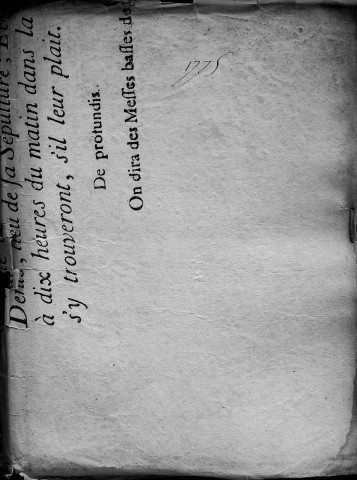 lieu de sa Sépulture; E
à dix heures du matin dans la
s'y trouveront, s'il leur plait.
De profundis.
On dira des Messes basses de
1775